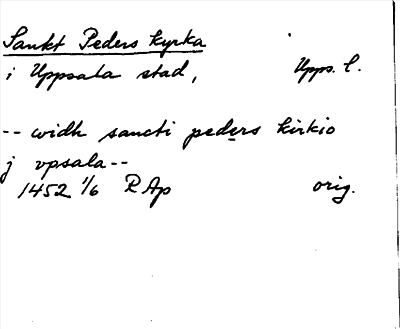 Sankt Peders kyrka
i Uppsala stad, Upps. l.
-- widh sancti peders kirkio
j vpsala--
1452 1/6 R Ap orig.